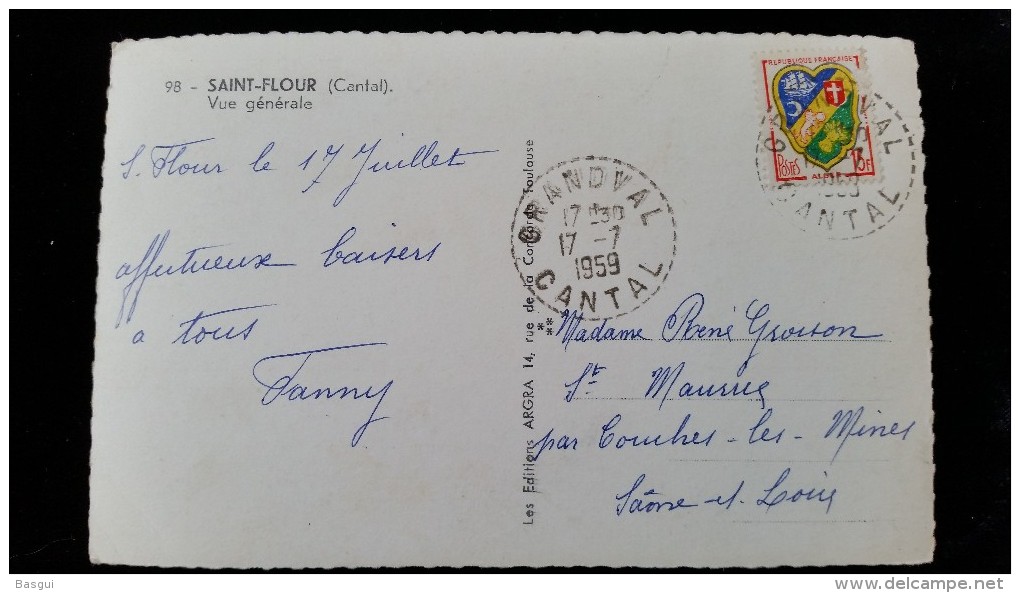 98 - SAINT-FLOUR (Cantal).
Vue générale
S. Flour le 17 Juillet
affectueux baisers
a tous
Fanny
Les Editions ARGRA 14, rue de la Concorde Toulouse
**
GRANDVAL
17 H30
17 -7
1959
CANTAL
REPUBLIQUE FRANÇAISE
POSTES
15F
GRANDVAL
1959
CANTAL
Madame René Grosson
St Maurice
par Couches-les-Mines
Saône-et-Loire
Basgui
www.delcampe.net